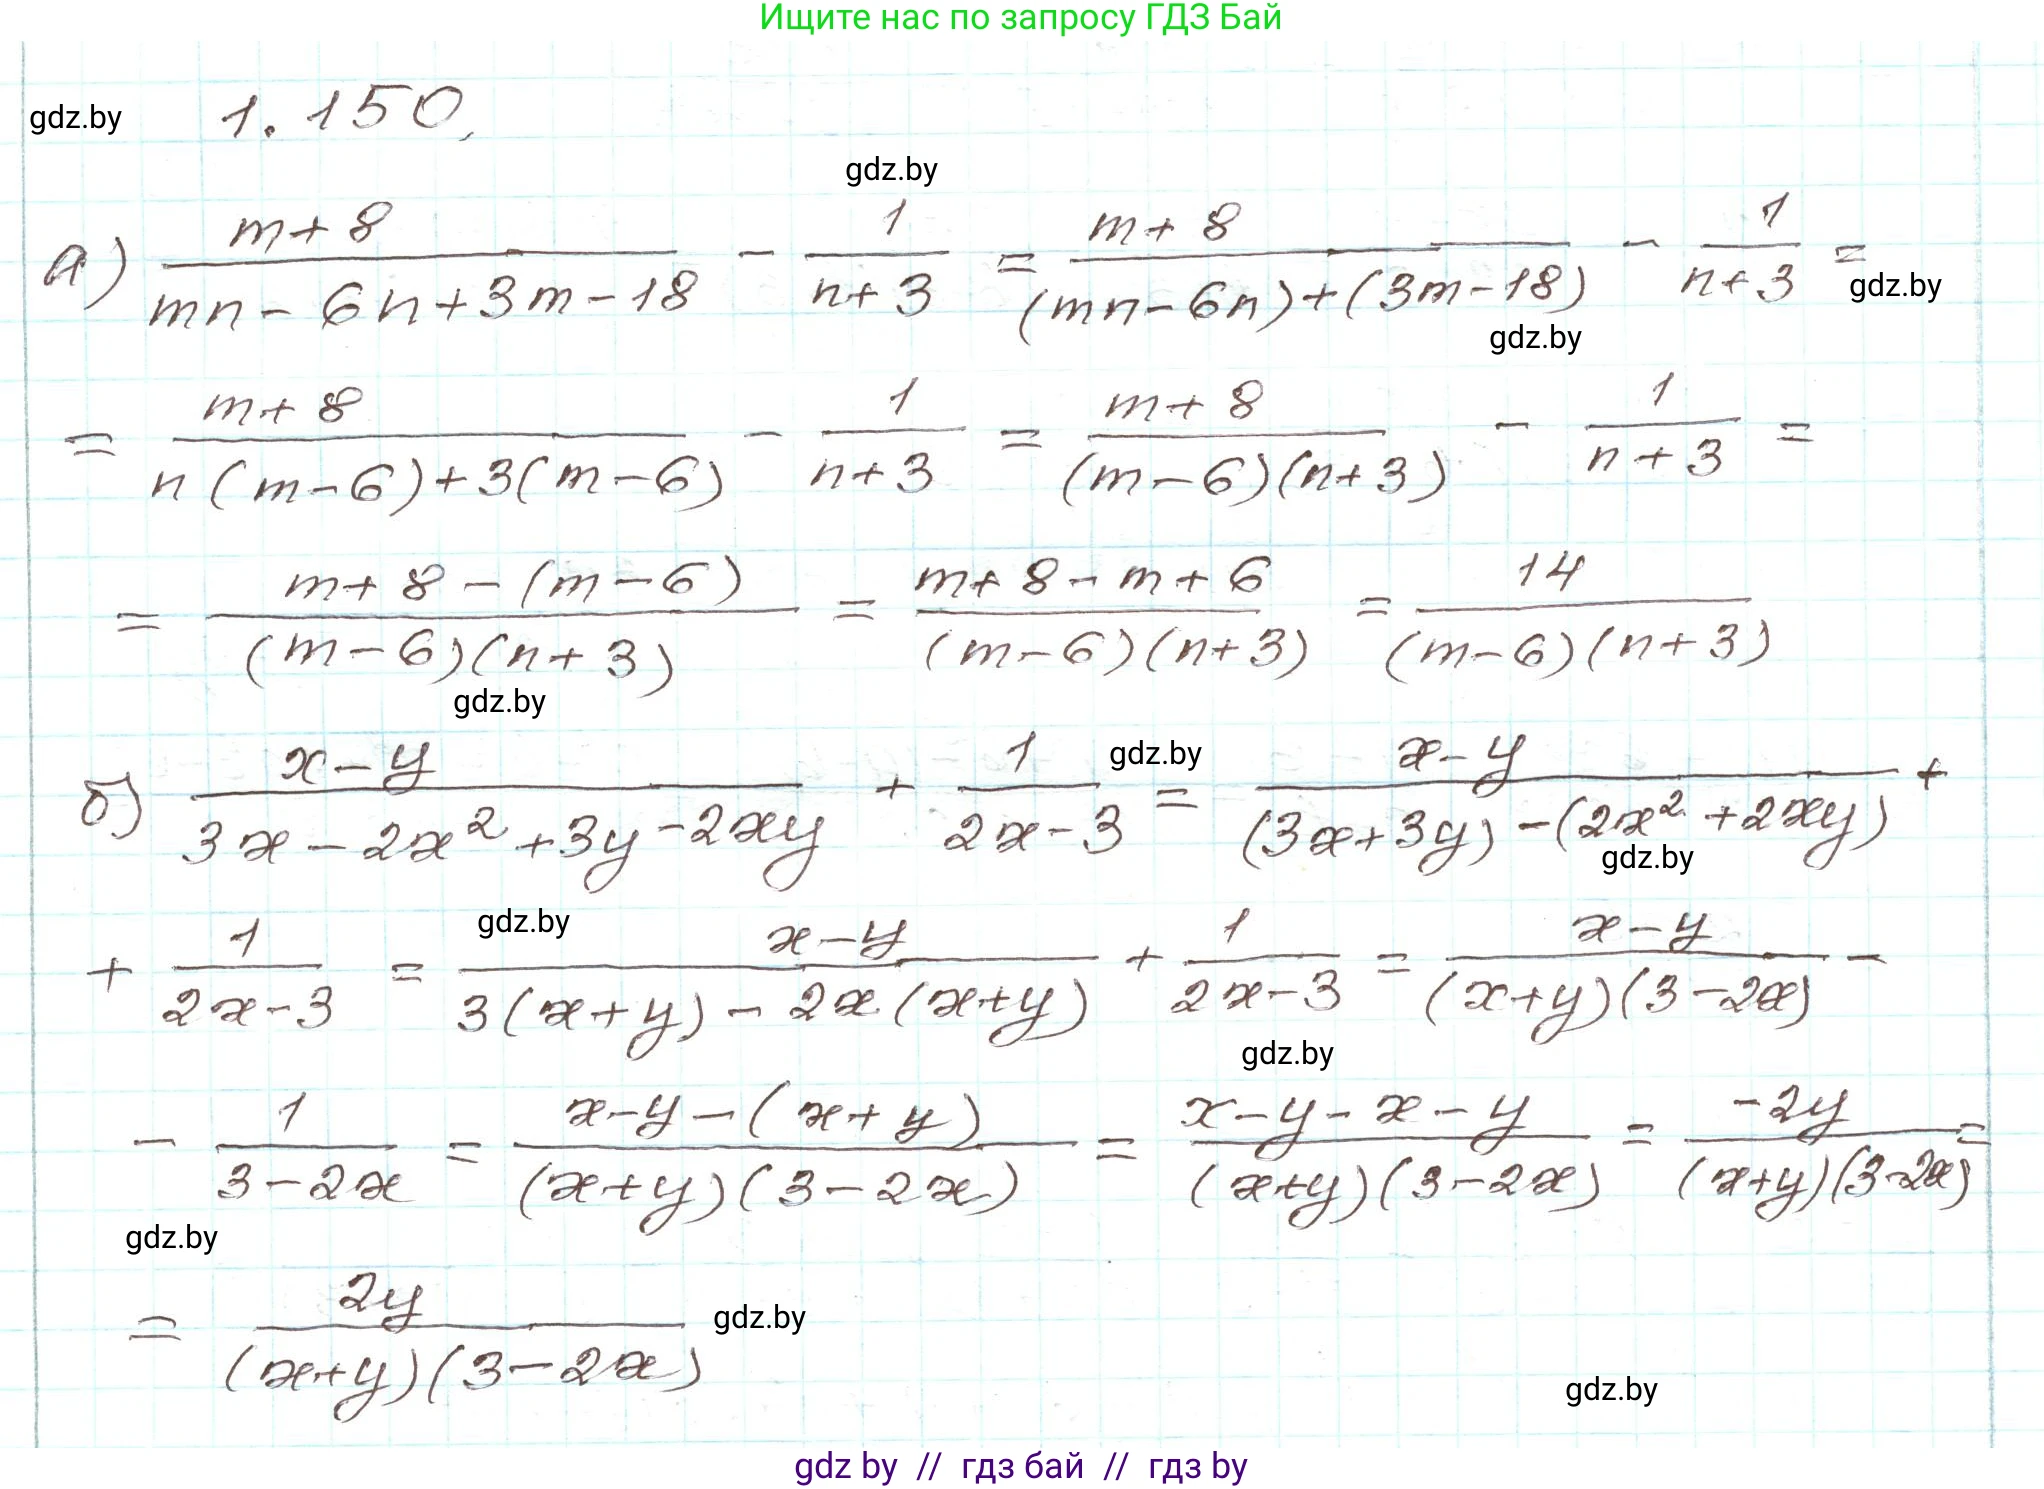 Ищите нас по запросу ГДЗ Бай
gdz.by 1.150.
gdz.by
а) (m+8)/(mn-6n+3m-18) - 1/(n+3) = (m+8)/((mn-6n)+(3m-18)) - 1/(n+3) =
gdz.by
gdz.by
= (m+8)/(n(m-6)+3(m-6)) - 1/(n+3) = (m+8)/((m-6)(n+3)) - 1/(n+3) =
= (m+8-(m-6))/((m-6)(n+3)) = (m+8-m+6)/((m-6)(n+3)) = 14/((m-6)(n+3))
gdz.by
б) (x-y)/(3x-2x²+3y-2xy) + 1/(2x-3) = (x-y)/((3x+3y)-(2x²+2xy)) +
gdz.by
gdz.by
gdz.by
+ 1/(2x-3) = (x-y)/(3(x+y)-2x(x+y)) + 1/(2x-3) = (x-y)/((x+y)(3-2x)) -
gdz.by
- 1/(3-2x) = (x-y-(x+y))/((x+y)(3-2x)) = (x-y-x-y)/((x+y)(3-2x)) = (-2y)/((x+y)(3-2x)) =
gdz.by
= 2y/((x+y)(3-2x))
gdz.by
gdz.by
gdz by // гдз бай // гдз by